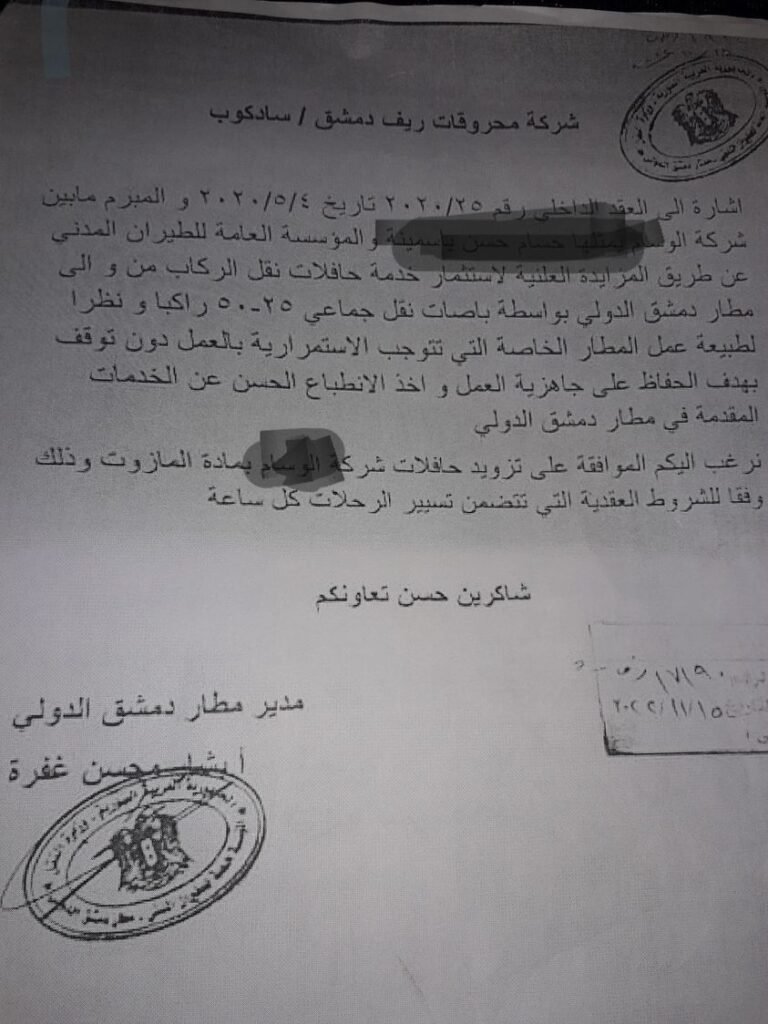 شركة محروقات ريف دمشق / سادكوب
اشارة الى العقد الداخلي رقم ٢٠٢٠/٢٥ تاريخ ٢٠٢٠/٥/٤ و المبرم مابين
شركة الوسام يمثلها حسام حسن ياسمينة والمؤسسة العامة للطيران المدني
عن طريق المزايدة العلنية لاستثمار خدمة حافلات نقل الركاب من و الى
مطار دمشق الدولي بواسطة باصات نقل جماعي ٢٥-٥٠ راكبا و نظرا
لطبيعة عمل المطار الخاصة التي تتوجب الاستمرارية بالعمل دون توقف
بهدف الحفاظ على جاهزية العمل و اخذ الانطباع الحسن عن الخدمات
المقدمة في مطار دمشق الدولي
نرغب اليكم الموافقة على تزويد حافلات شركة الوسام بمادة المازوت وذلك
وفقا للشروط العقدية التي تتضمن تسيير الرحلات كل ساعة
شاكرين حسن تعاونكم
١٧١٩٠
٢٠٢٢/١١/١٥
مدير مطار دمشق الدولي
محسن غفرة
الجمهورية العربية السورية - وزارة النقل